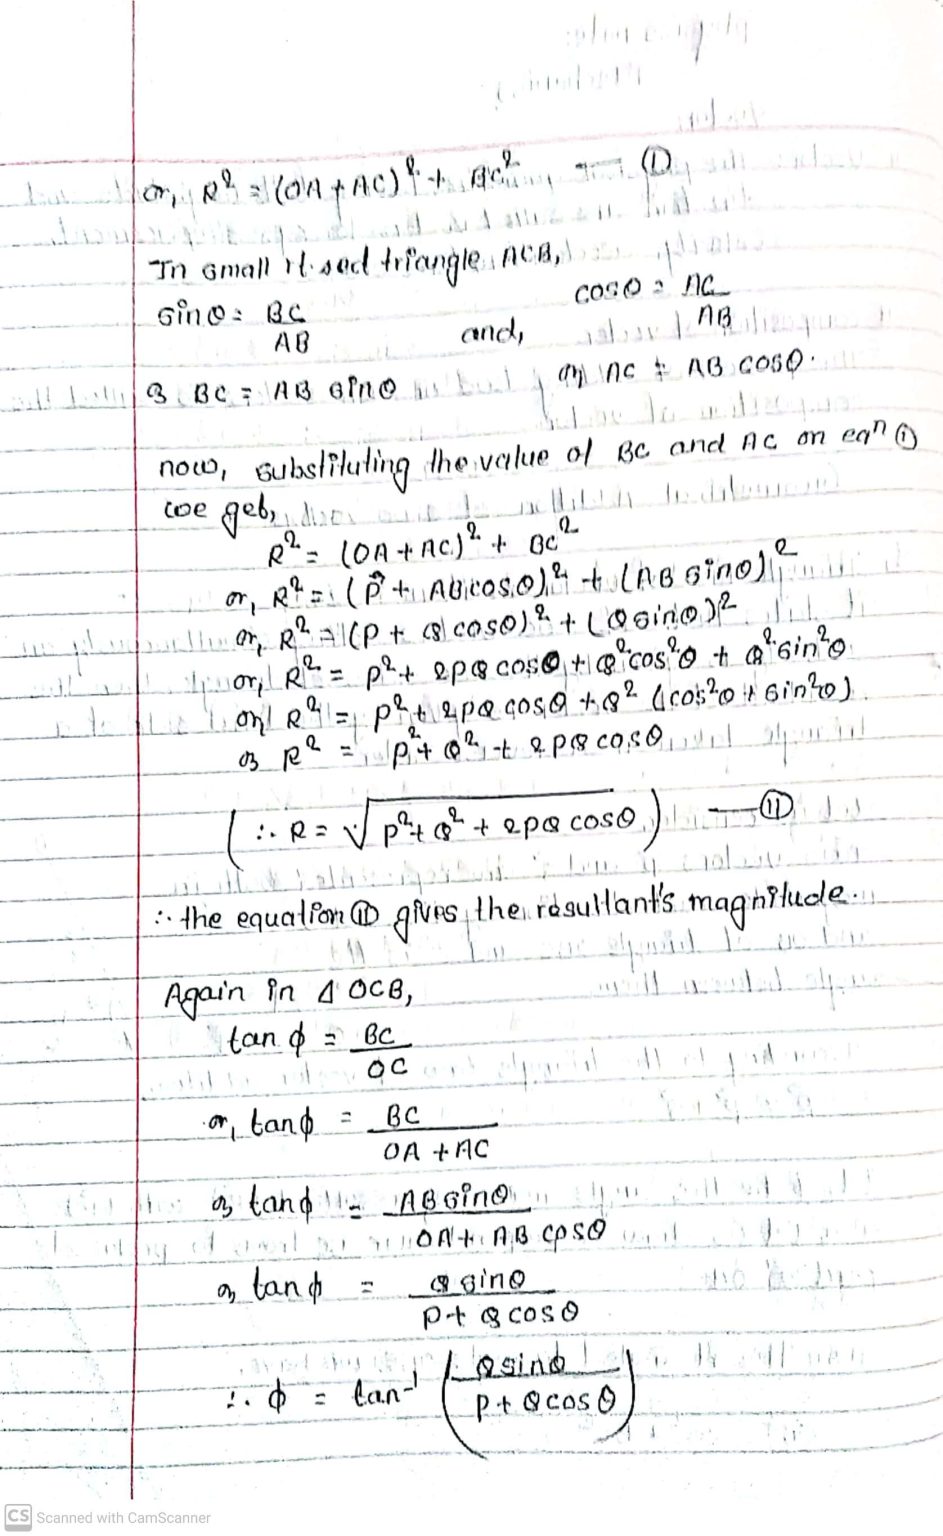 or, R² = (OA + AC)² + BC² — ①
In small rt. sed triangle ACB,
sinθ = BC/AB and, cosθ = AC/AB
or BC = AB sinθ or, AC = AB cosθ.
now, substituting the value of BC and AC on eqⁿ ①
we get,
R² = (OA + AC)² + BC²
or, R² = (P + AB cosθ)² + (AB sinθ)²
or, R² = (P + Q cosθ)² + (Q sinθ)²
or, R² = P² + 2PQ cosθ + Q² cos²θ + Q² sin²θ
or, R² = P² + 2PQ cosθ + Q² (cos²θ + sin²θ)
or R² = P² + Q² + 2PQ cosθ
(∴ R = √P² + Q² + 2PQ cosθ) — ⑪
∴ the equation ⑪ gives the resultant's magnitude.
Again in Δ OCB,
tan ϕ = BC/OC
or, tanϕ = BC/OA + AC
or tanϕ = AB sinθ/OA + AB cosθ
or tanϕ = Q sinθ/P + Q cosθ
∴ ϕ = tan⁻¹ (Q sinθ/P + Q cosθ)
CS Scanned with CamScanner